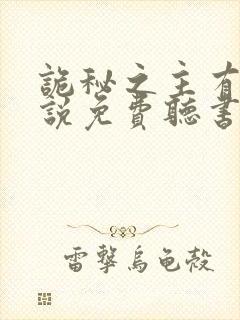 詭秘之主有
說免費聽書
雷擊烏龜殼